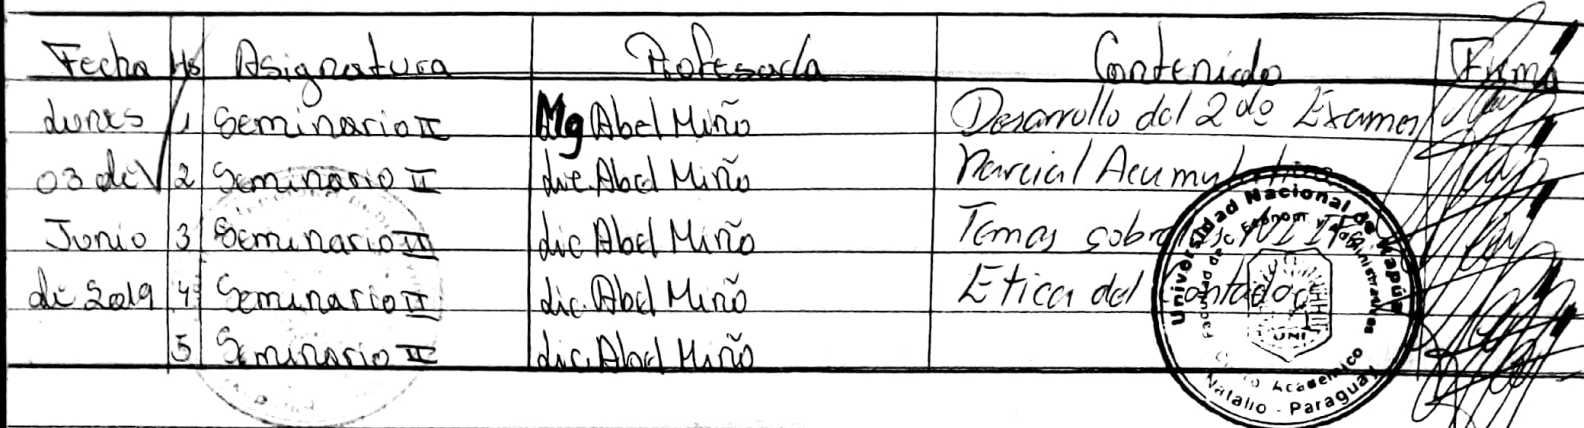 Fecha Hs Asignatura Profesor/a Contenido Firma
Lunes 1 Seminario II Mg Abel Miño Desarrollo del 2do Examen
03 de 2 Seminario II Lic. Abel Miño Parcial Acumulativo
Junio 3 Seminario II Lic Abel Miño Temas sobre
de 2019 4 Seminario II Lic. Abel Miño Etica del Contador
5 Seminario II Lic. Abel Miño
Universidad Nacional de Itapúa
Facultad de Economi y Administrativas
UNI
Académico
Natalio - Paraguay